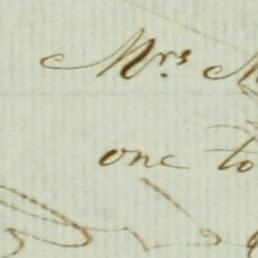 Mrs
one to